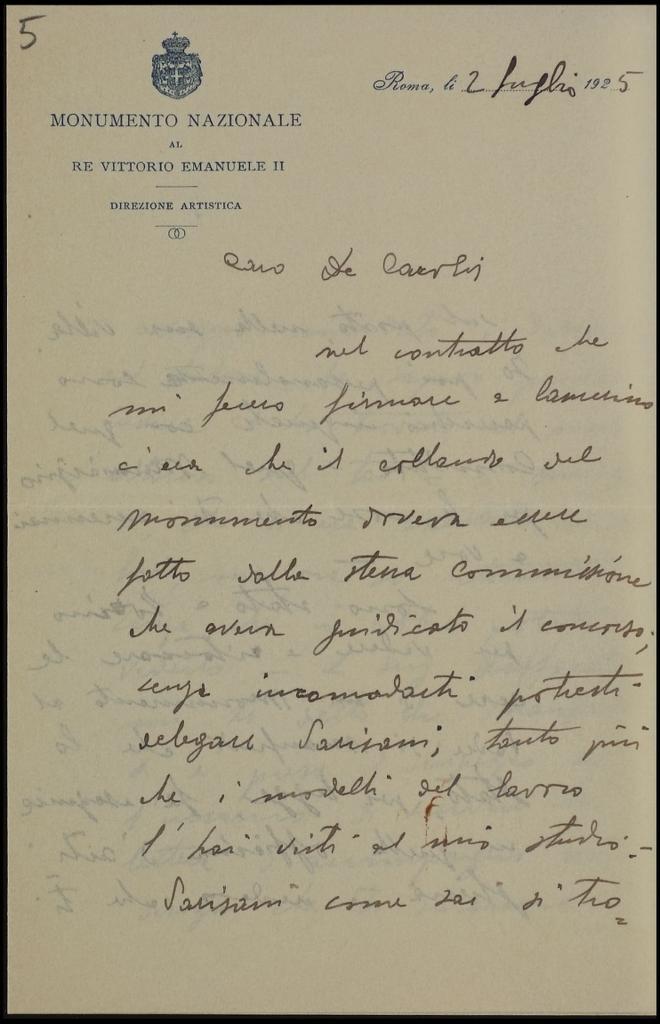 5
Roma, li 2 luglio 1925
MONUMENTO NAZIONALE
AL
RE VITTORIO EMANUELE II
DIREZIONE ARTISTICA
Caro De Carolis
nel contratto che
mi fecero firmare a Camerino
c'era che il collaudo del
monumento doveva essere
fatto dalla stessa commissione
che aveva giudicato il concorso;
senza incomodarti potresti
delegare Parisani, tanto più
che i modelli del lavoro
l'hai visti al mio studio.-
Parisani come sai si tro=